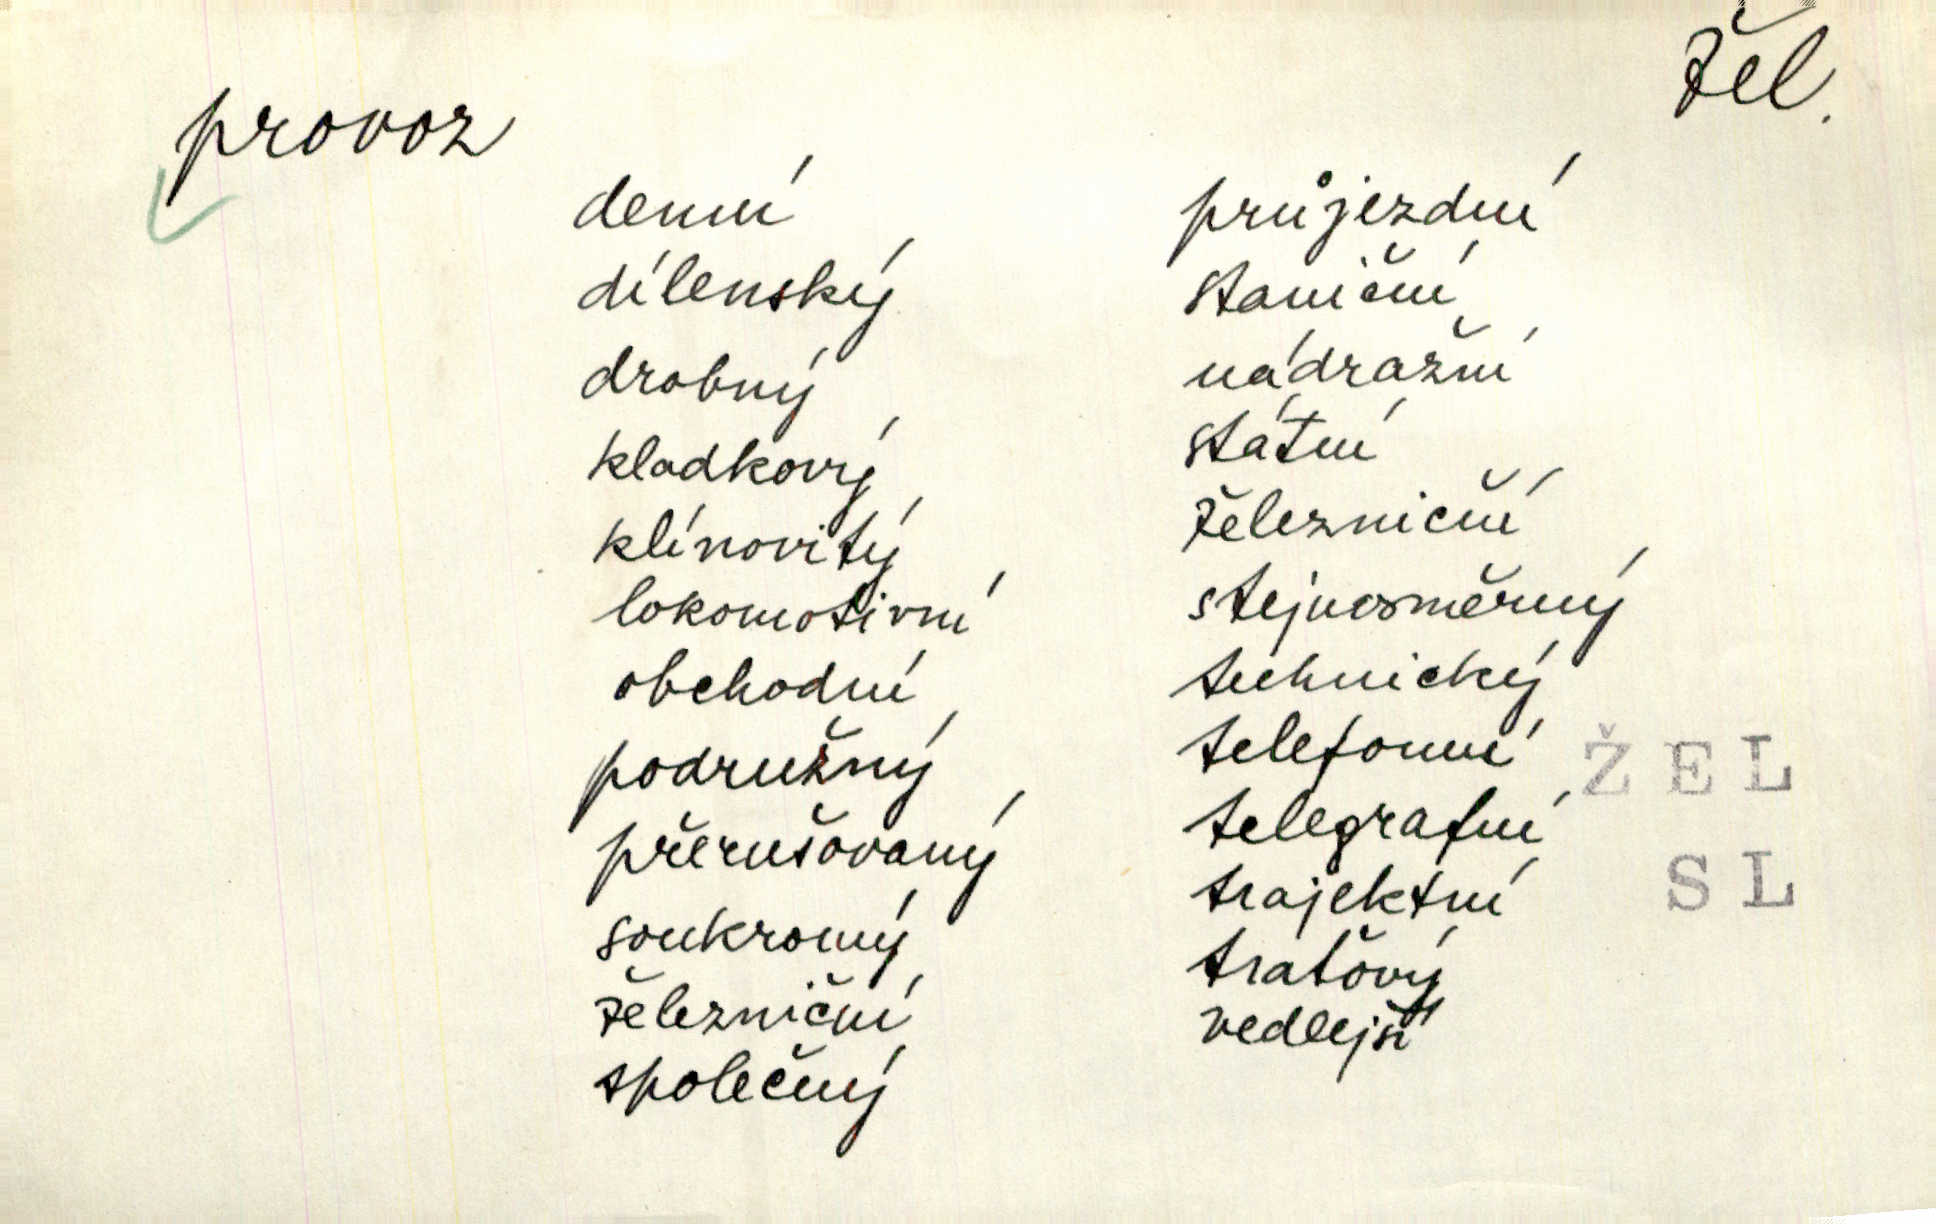 žel.
provoz
denní
dílenský
drobný
kladkový
klínovitý
lokomotivní
obchodní
podružný
přerušovaný
soukromý
železniční
společný
průjezdní
staniční
nádražní
státní
železniční
stejnosměrný
technický
telefonní
telegrafní
trajektní
traťový
vedlejší
ŽEL
SL